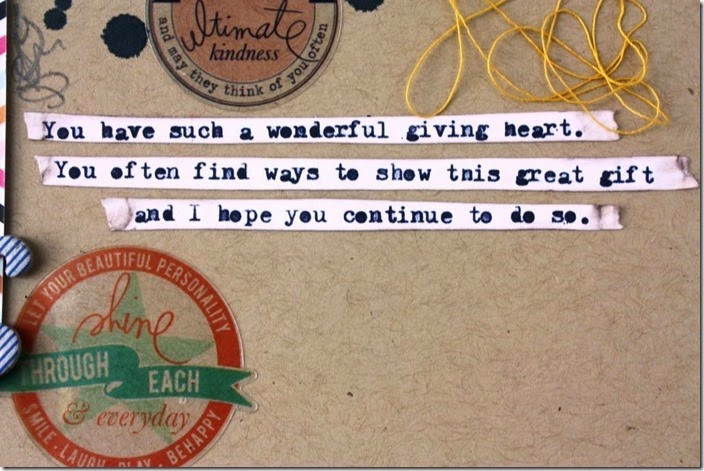 ultimate
kindness
and may they think of you often
You have such a wonderful giving heart.
You often find ways to show this great gift
and I hope you continue to do so.
LET YOUR BEAUTIFUL PERSONALITY
shine
THROUGH EACH
& everyday
SMILE · LAUGH · PLAY · BEHAPPY